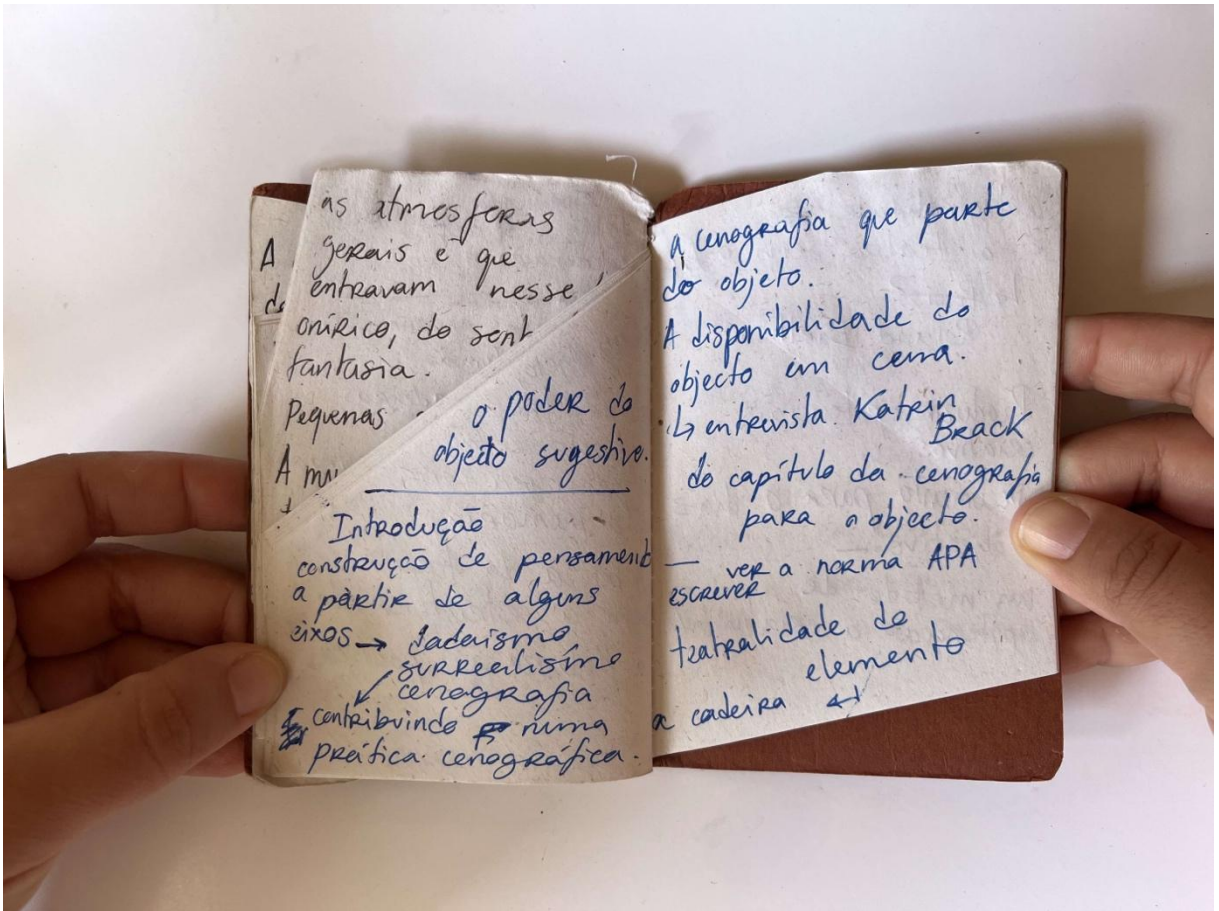 A
d
as atmosferas
gerais é que
entravam nesse
onírico, do sent
fantasia.
Pequenas
A mu
o poder do
objeto sugestivo.
Introdução
construção de pensament
a partir de alguns
eixos → dadaísmo
surrealismo
cenografia
contribuindo numa
prática cenográfica.
a cenografia que parte
do objeto.
A disponibilidade do
objecto em cena.
↳ entrevista Katrin
Brack
do capítulo da cenografia
para o objecto.
— ver a norma APA
escrever
teatralidade do
elemento
a cadeira ↵